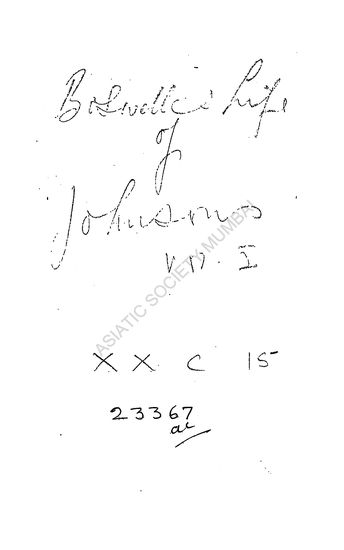 Boswell's Life
of
Johnsons
Vol. I
ASIATIC SOCIETY MUMBAI
XX C 15
23367